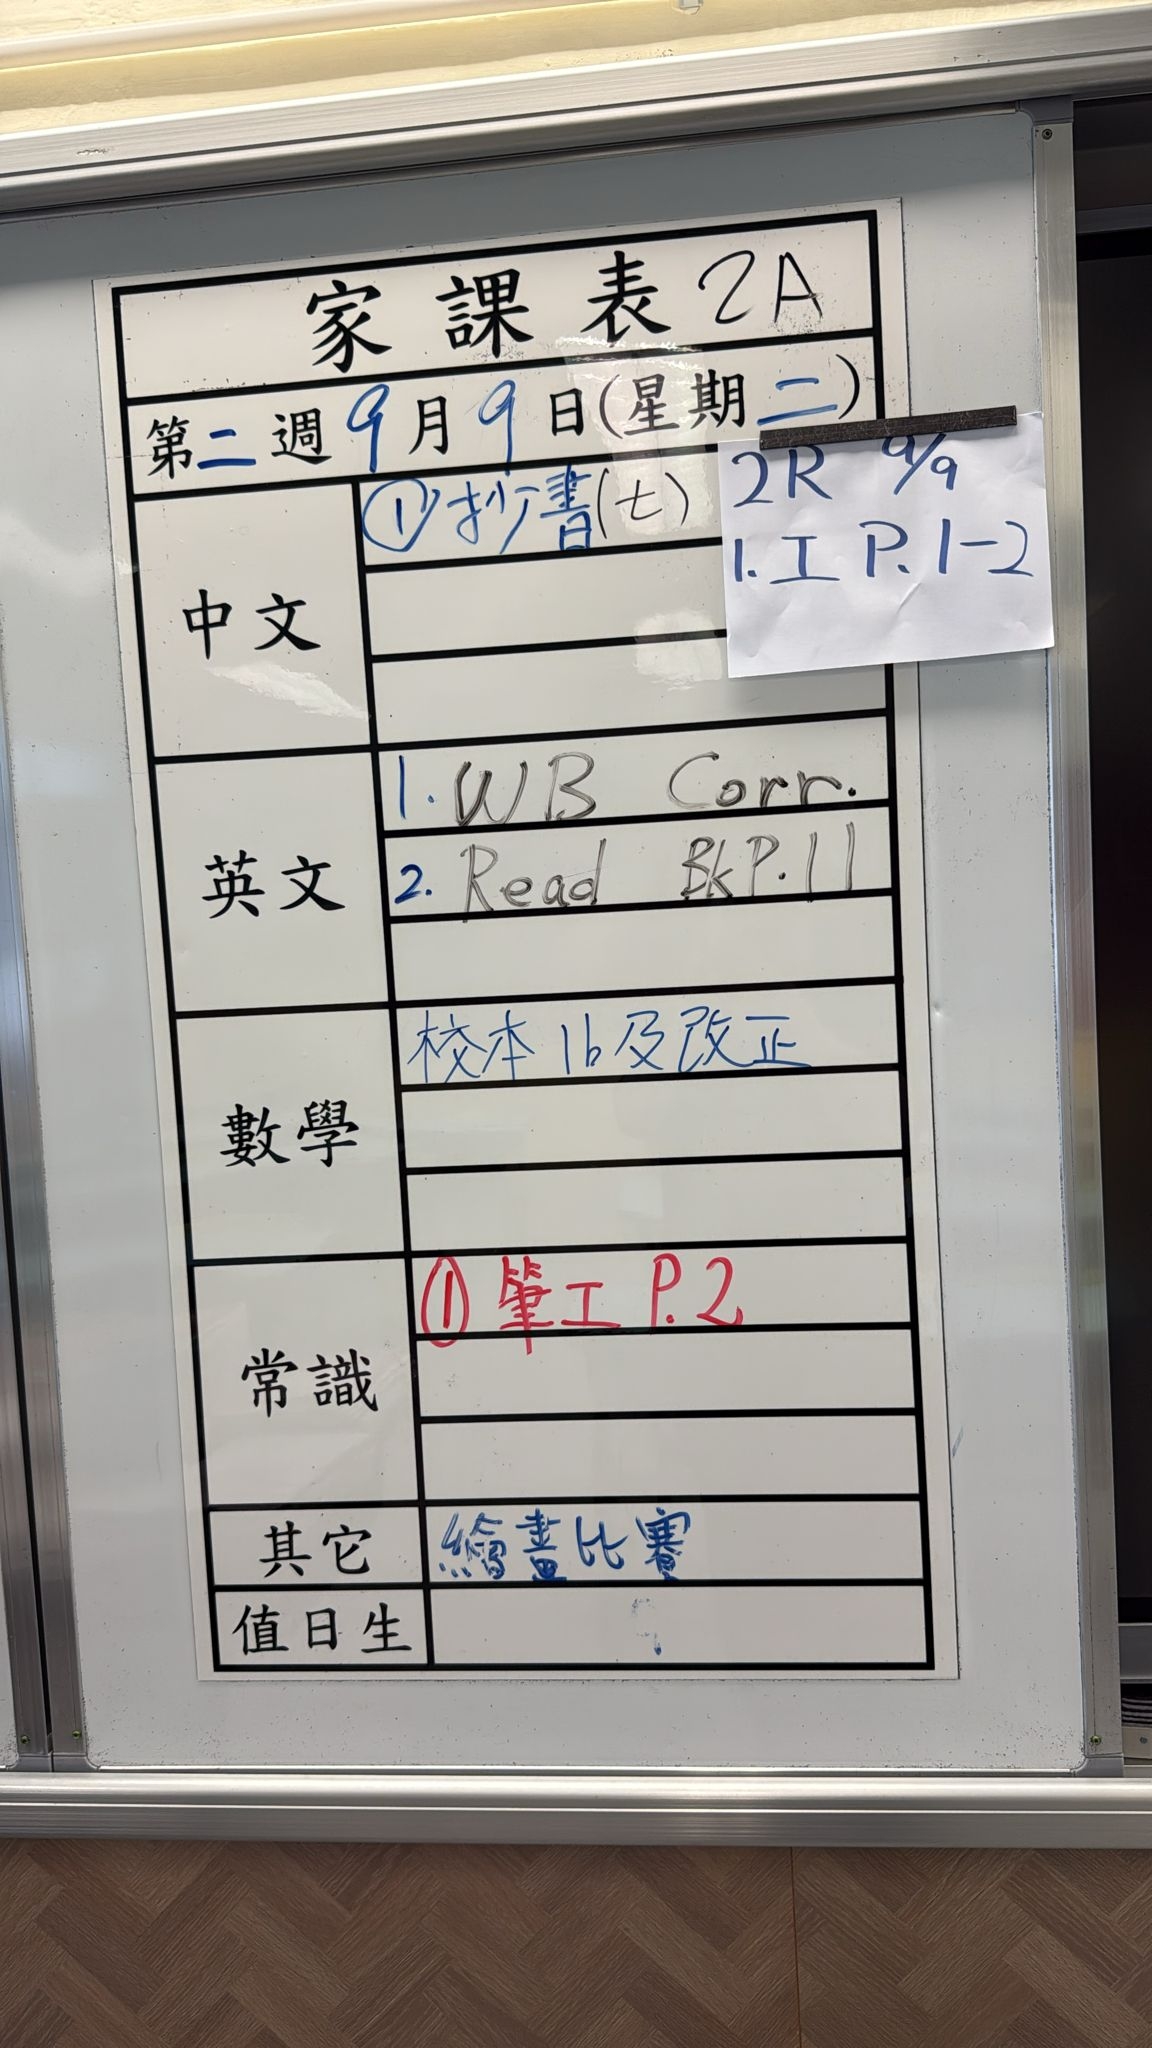 家課表 2A
第二週 9月9日(星期二)
中文
①抄書(七)
2R 9/9
1. 工 P.1-2
英文
1. WB Corr.
2. Read BkP.11
數學
校本 1b及改正
常識
① 筆工 P.2
其它
繪畫比賽
值日生